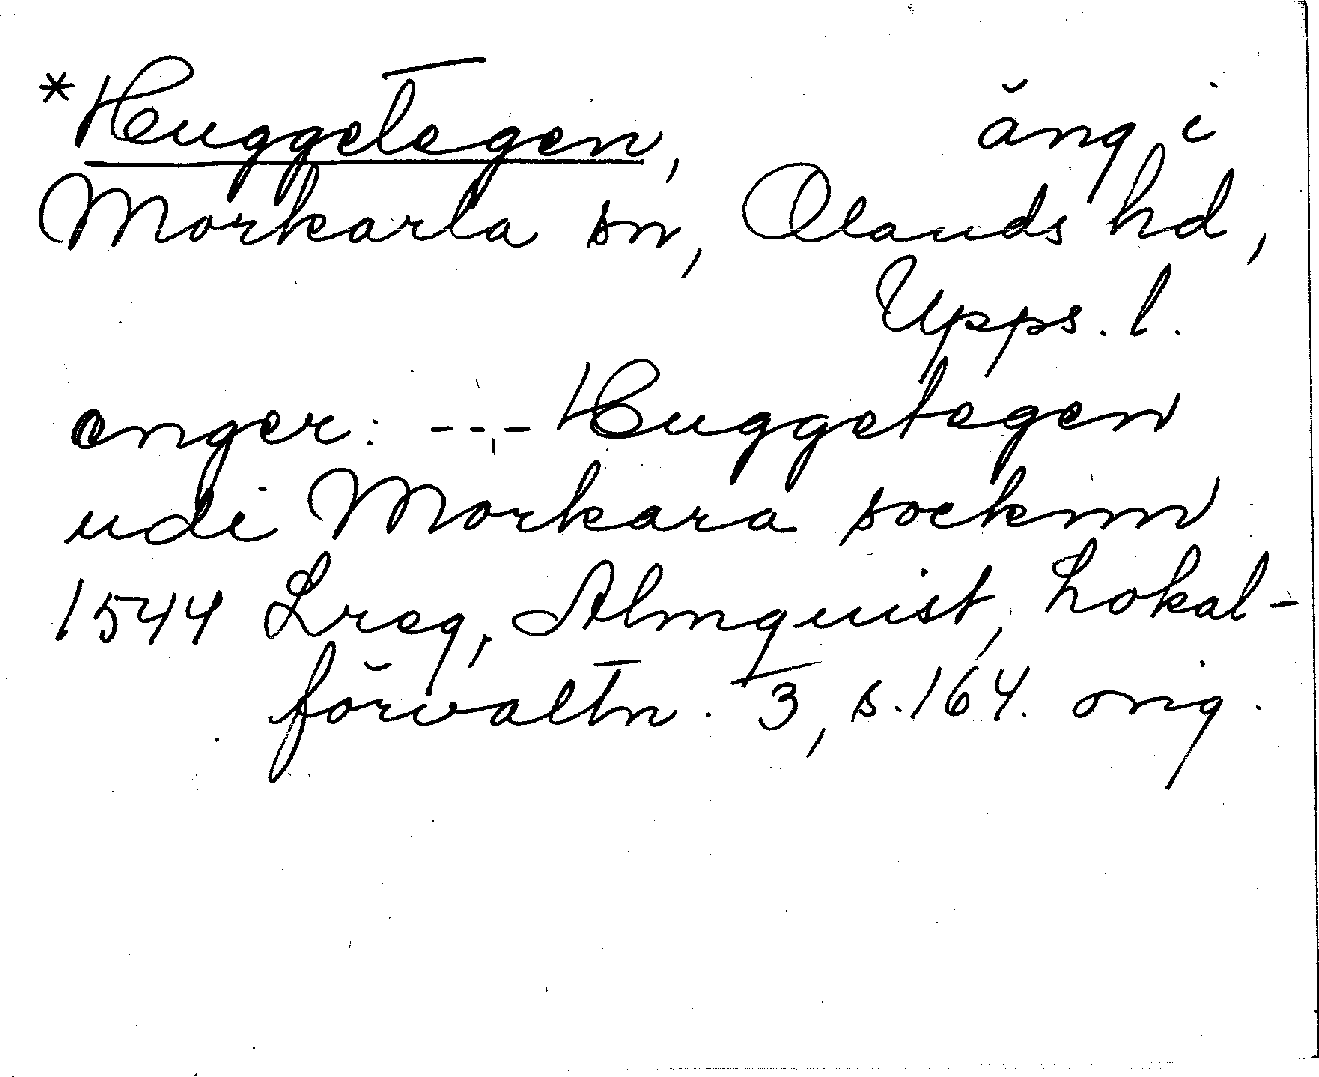 *Huggetegen, äng i
Morkarla sn, Olands hd,
Upps. l.
enger: --- Huggetegen
udi Morkara socknn
1544 Lreg, Almquist, Lokal-
förvaltn. 3, s. 164. orig.